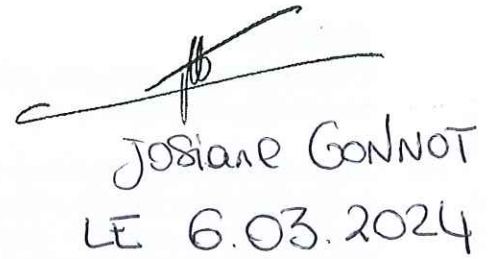 Josiane GONNOT
LE 6.03.2024